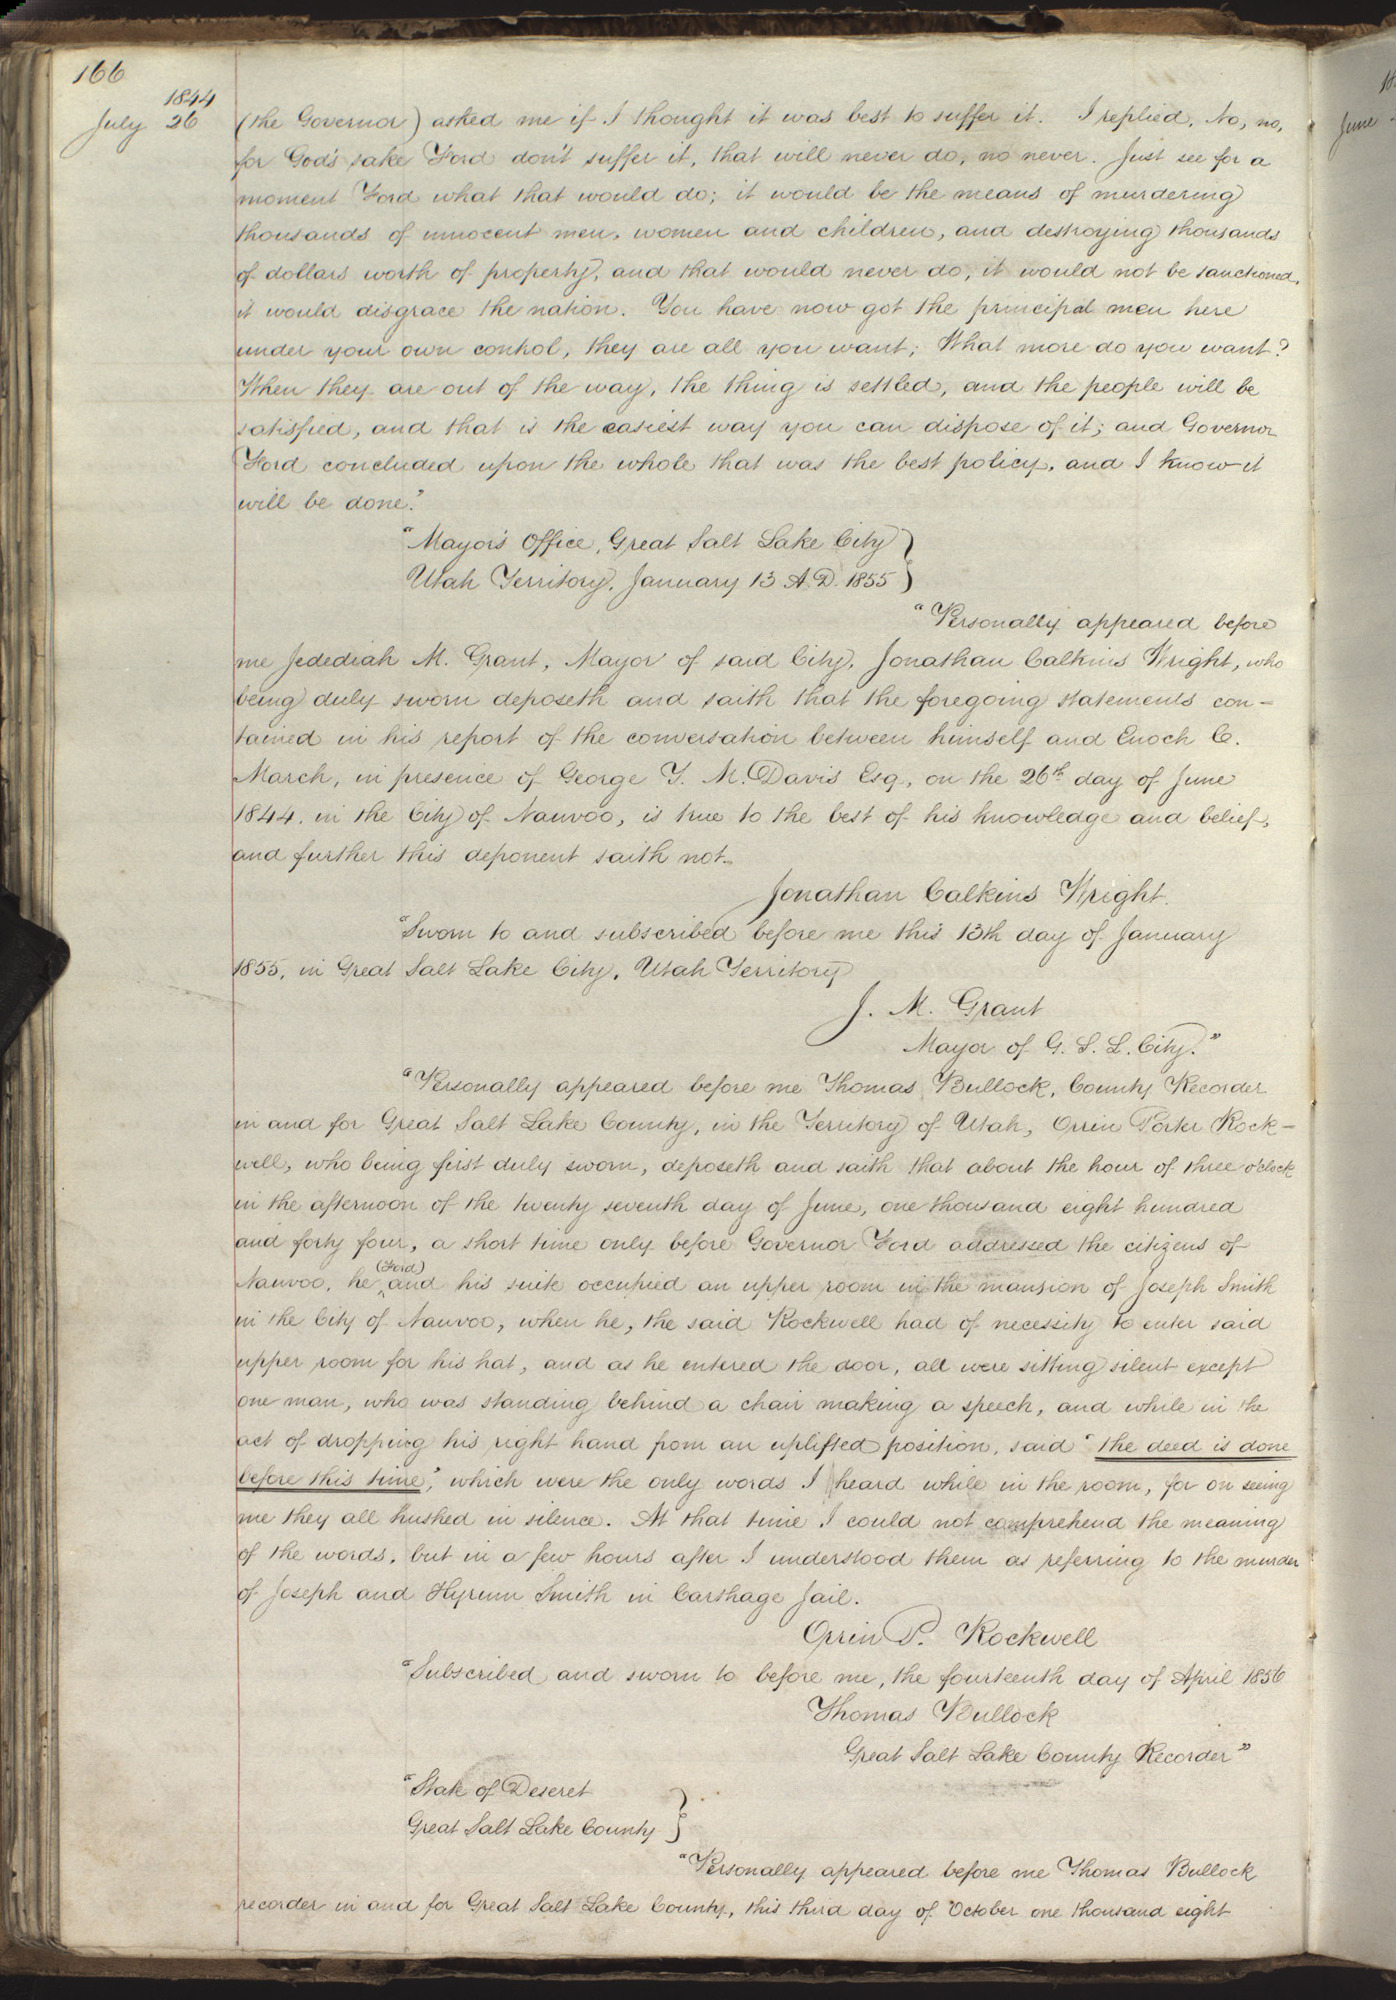 166
1844
July 26
(the Governor) asked me if I thought it was best to suffer it. I replied, No, no,
for God's sake Ford don't suffer it, that will never do, no never. Just see for a
moment Ford what that would do; it would be the means of murdering
thousands of innocent men, women and children, and destroying thousands
of dollars worth of property, and that would never do, it would not be sanctioned,
it would disgrace the nation. You have now got the principal men here
under your own control, they are all you want; What more do you want?
When they are out of the way, the thing is settled, and the people will be
satisfied, and that is the easiest way you can dispose of it; and Governor
Ford concluded upon the whole that was the best policy, and I know it
will be done."
"Mayor's Office, Great Salt Lake City }
Utah Territory, January 13 A.D. 1855 }
"Personally appeared before
me Jedediah M. Grant, Mayor of said City, Jonathan Calkins Wright, who
being duly sworn deposeth and saith that the foregoing statements con-
tained in his report of the conversation between himself and Enoch C.
March, in presence of George T. M. Davis Esq, on the 26th day of June
1844, in the City of Nauvoo, is true to the best of his knowledge and belief,
and further this deponent saith not.
Jonathan Calkins Wright.
"Sworn to and subscribed before me this 13th day of January
1855, in Great Salt Lake City, Utah Territory
J. M. Grant
Mayor of G. S. L. City."
"Personally appeared before me Thomas Bullock, County Recorder
in and for Great Salt Lake County, in the Territory of Utah, Orrin Porter Rock-
well, who being first duly sworn, deposeth and saith that about the hour of three o'clock
in the afternoon of the twenty seventh day of June, one thousand eight hundred
and forty four, a short time only before Governor Ford addressed the citizens of
Nauvoo, he (Ford) and his suite occupied an upper room in the mansion of Joseph Smith
in the City of Nauvoo, when he, the said Rockwell had of necessity to enter said
upper room for his hat, and as he entered the door, all were sitting silent except
one man, who was standing behind a chair making a speech, and while in the
act of dropping his right hand from an uplifted position, said "the deed is done
before this time", which were the only words I heard while in the room, for on seeing
me they all hushed in silence. At that time I could not comprehend the meaning
of the words, but in a few hours after I understood them as referring to the murder
of Joseph and Hyrum Smith in Carthage Jail.
Orrin P. Rockwell
"Subscribed and sworn to before me, the fourteenth day of April 1856
Thomas Bullock
Great Salt Lake County Recorder"
"State of Deseret }
Great Salt Lake County }
"Personally appeared before me Thomas Bullock
recorder in and for Great Salt Lake County, this third day of October one thousand eight
June